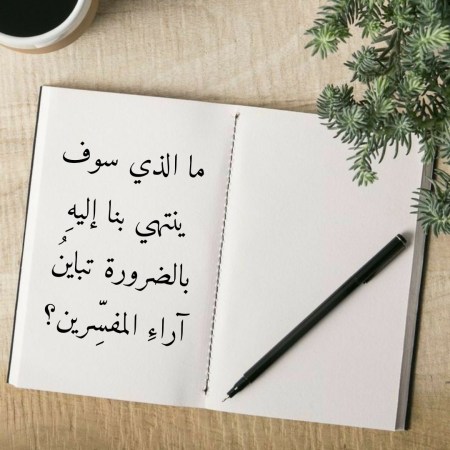 ما الذي سوف
ينتهي بنا إليهِ
بالضرورة تباينُ
آراءِ المفسِّرين؟